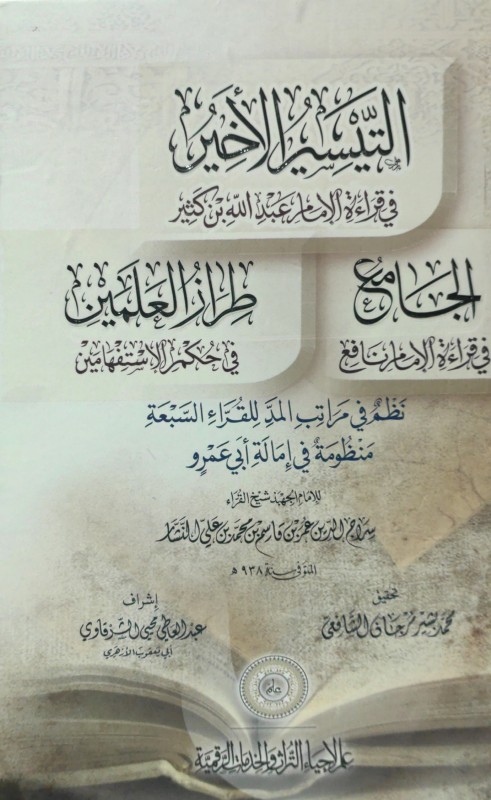 التَّيْسِيرُ الأَخِيرُ
في قراءة الإمام عبد الله بن كثير
الجَامِعُ
في قراءة الإمام نافع
طِرَازُ العَلَمَيْنِ
في حكم الاستفهامين
نظمٌ في مراتب المد للقراء السبعة
منظومةٌ في إمالة أبي عمرو
للإمام الجهبذ شيخ القراء
سراج الدين عمر بن قاسم بن محمد بن علي النشار
المتوفى سنة ٩٣٨ هـ
تحقيق
محمد بشير مرجان الشافعي
إشراف
عبد العاطي محيي الشرقاوي
أبي يعقوب الأزهري
علم
علم لإحياء التراث والخدمات الرقمية